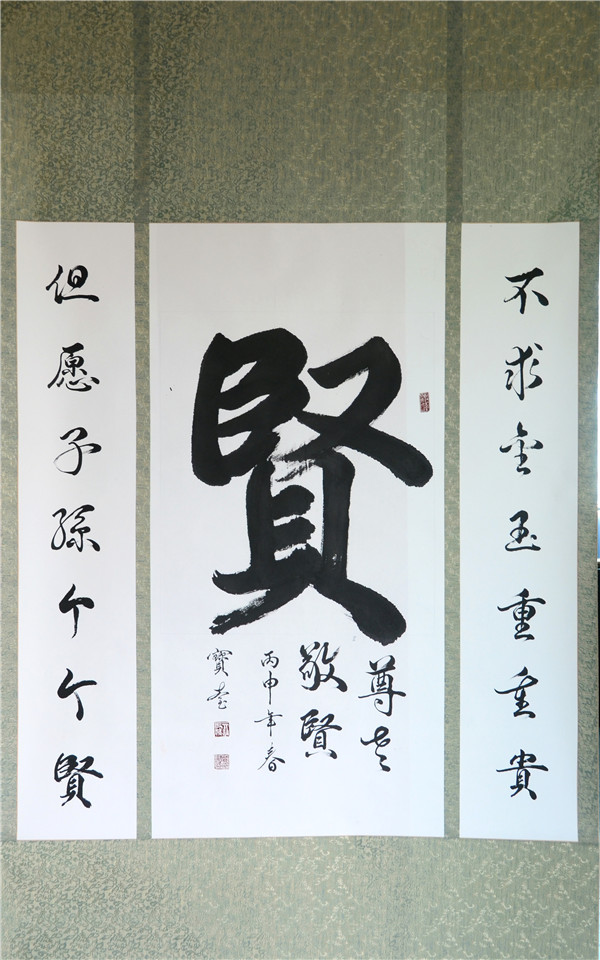 不求金玉重重貴
賢
尊老
敬賢
丙申年春
寶奎
但愿子孫个个賢